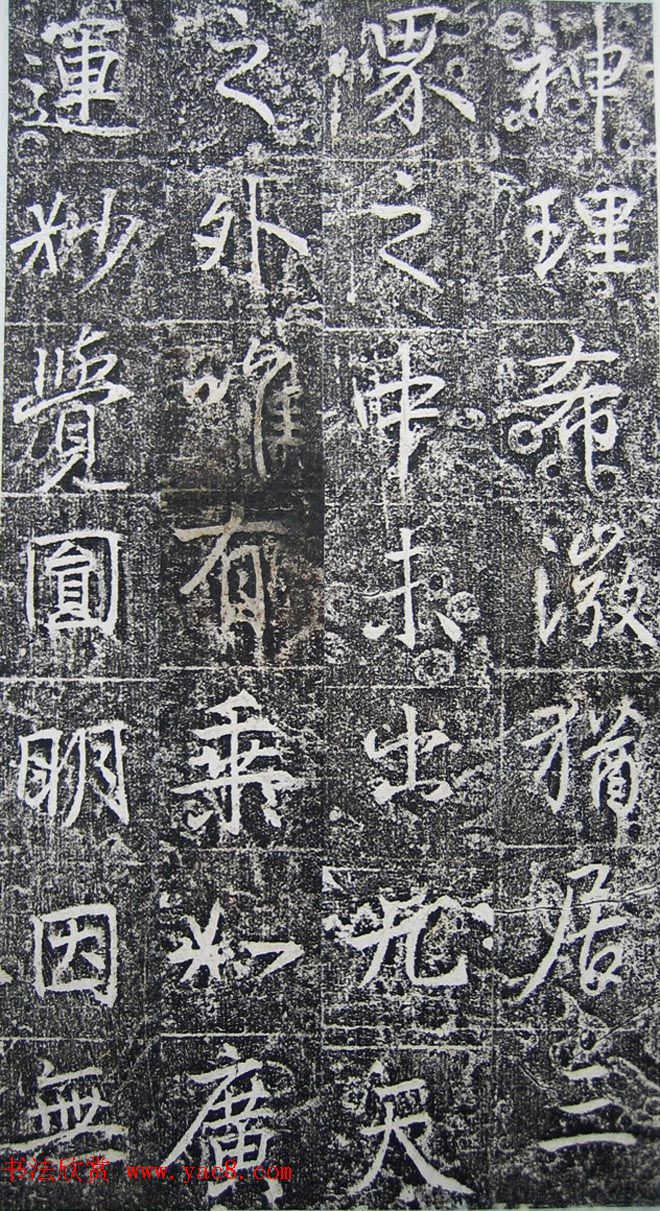 神理希微猶居三
界之中未出九天
之外唯有乘如廣
運妙覺圓明因無
书法欣赏 www.yac8.com